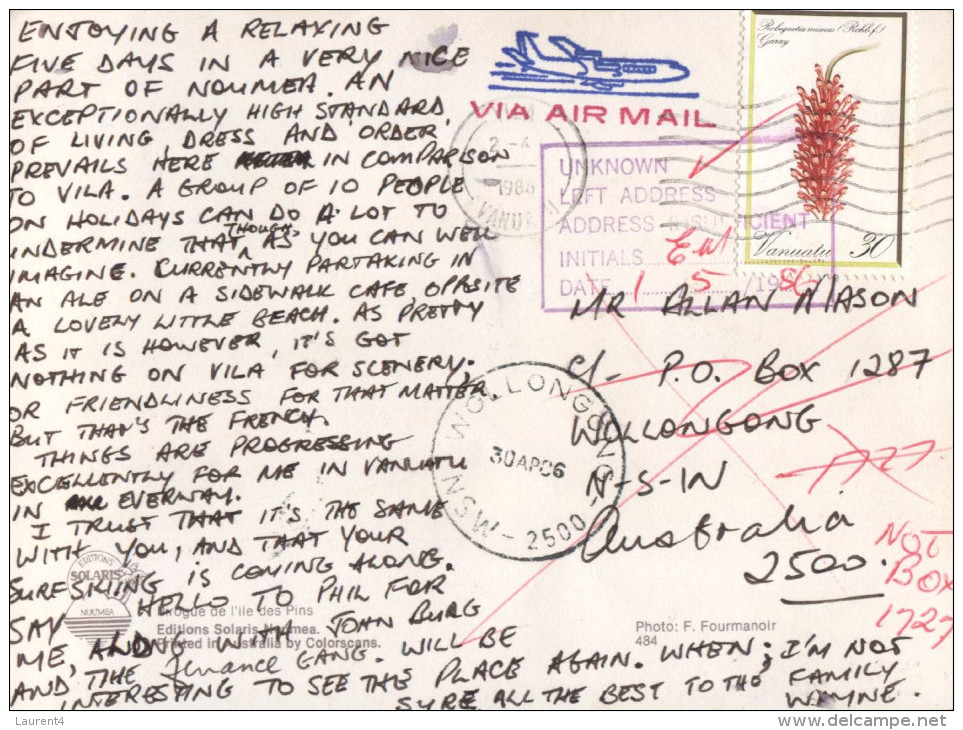 ENJOYING A RELAXING
FIVE DAYS IN A VERY NICE
PART OF NOUMEA. AN
EXCEPTIONALLY HIGH STANDARD
OF LIVING, DRESS AND ORDER
PREVAILS HERE IN COMPARISON
TO VILA. A GROUP OF 10 PEOPLE
ON HOLIDAYS CAN DO A LOT TO
INDERMINE THAT THOUGH AS YOU CAN WELL
IMAGINE. CURRENTLY PARTAKING IN
AN ALE ON A SIDEWALK CAFE OPPSITE
A LOVELY LITTLE BEACH. AS PRETTY
AS IT IS HOWEVER, IT'S GOT
NOTHING ON VILA FOR SCENERY,
OR FRIENDLINESS FOR THAT MATTER.
BUT THAT'S THE FRENCH.
THINGS ARE PROGRESSING
EXCELLENTLY FOR ME IN VANUATU
IN EVERWAY.
I TRUST THAT IT'S THE SAME
WITH YOU, AND THAT YOUR
SURFSKIING IS COMING ALONG.
SAY HELLO TO PHIL FOR
ME, AND WITH JOAN BURG
AND THE finance GANG. WILL BE
INTERESTING TO SEE THIS PLACE AGAIN. WHEN; I'M NOT
SURE ALL THE BEST TO THE FAMILY
WAYNE.
VIA AIR MAIL
Robiquetia mimus (Rchb.f.)
Garay
Vanuatu 30
2-
1986
VANUA
UNKNOWN
LEFT ADDRESS
ADDRESS INSUFFICIENT
INITIALS
DATE 1 5 /1986
MR ALLAN MASON
C/- P.O. BOX 1287
WOLLONGONG
N-S-W
Australia
2500.
WOLLONGONG
30AP86
NSW-2500-
NOT
BOX
1727
EDITIONS
SOLARIS
NOUMEA
Pirogue de l'île des Pins
Editions Solaris Noumea.
Printed in Australia by Colorscans.
Photo: F. Fourmanoir
484
Laurent4
delcampe.net